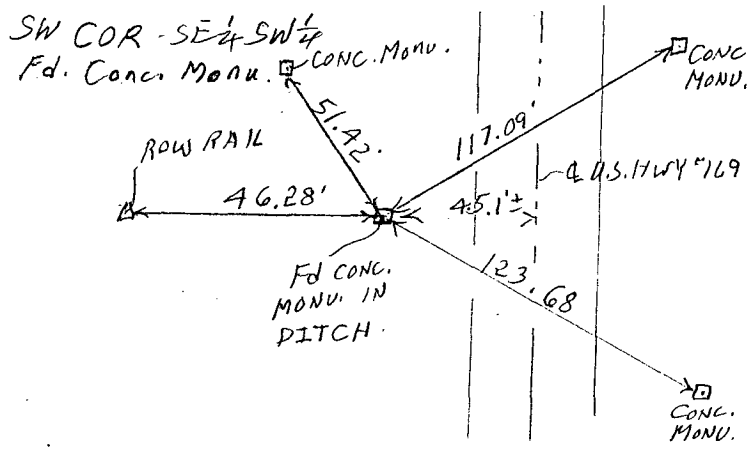 SW COR - SE¼ SW¼
Fd. Conc. Monu.
CONC. MONU.
CONC.
MONU.
51.42'
117.09'
ROW RAIL
46.28'
45.1'±
℄ U.S. HWY #169
Fd CONC.
MONU. IN
DITCH.
123.68
CONC.
MONU.